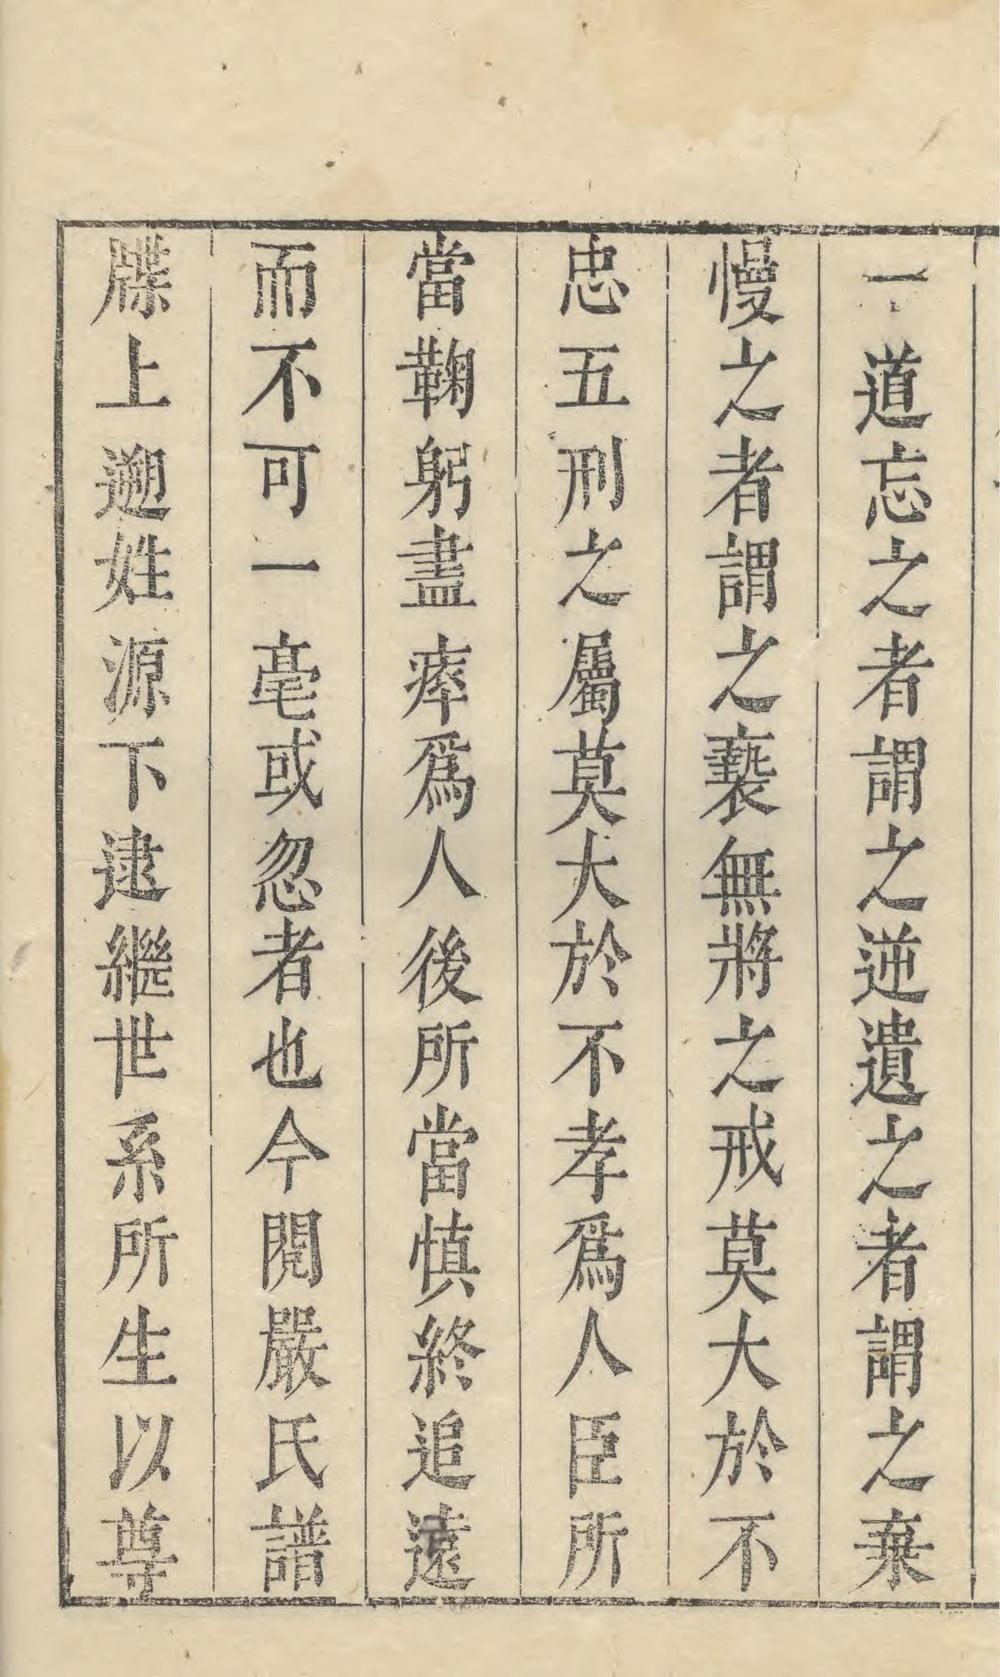 一道忘之者謂之逆遺之者謂之棄
慢之者謂之褻無將之戒莫大於不
忠五刑之屬莫大於不孝爲人臣所
當鞠躬盡瘁爲人後所當慎終追遠
而不可一毫或忽者也今閱嚴氏譜
牒上遡姓源下逮繼世系所生以尊